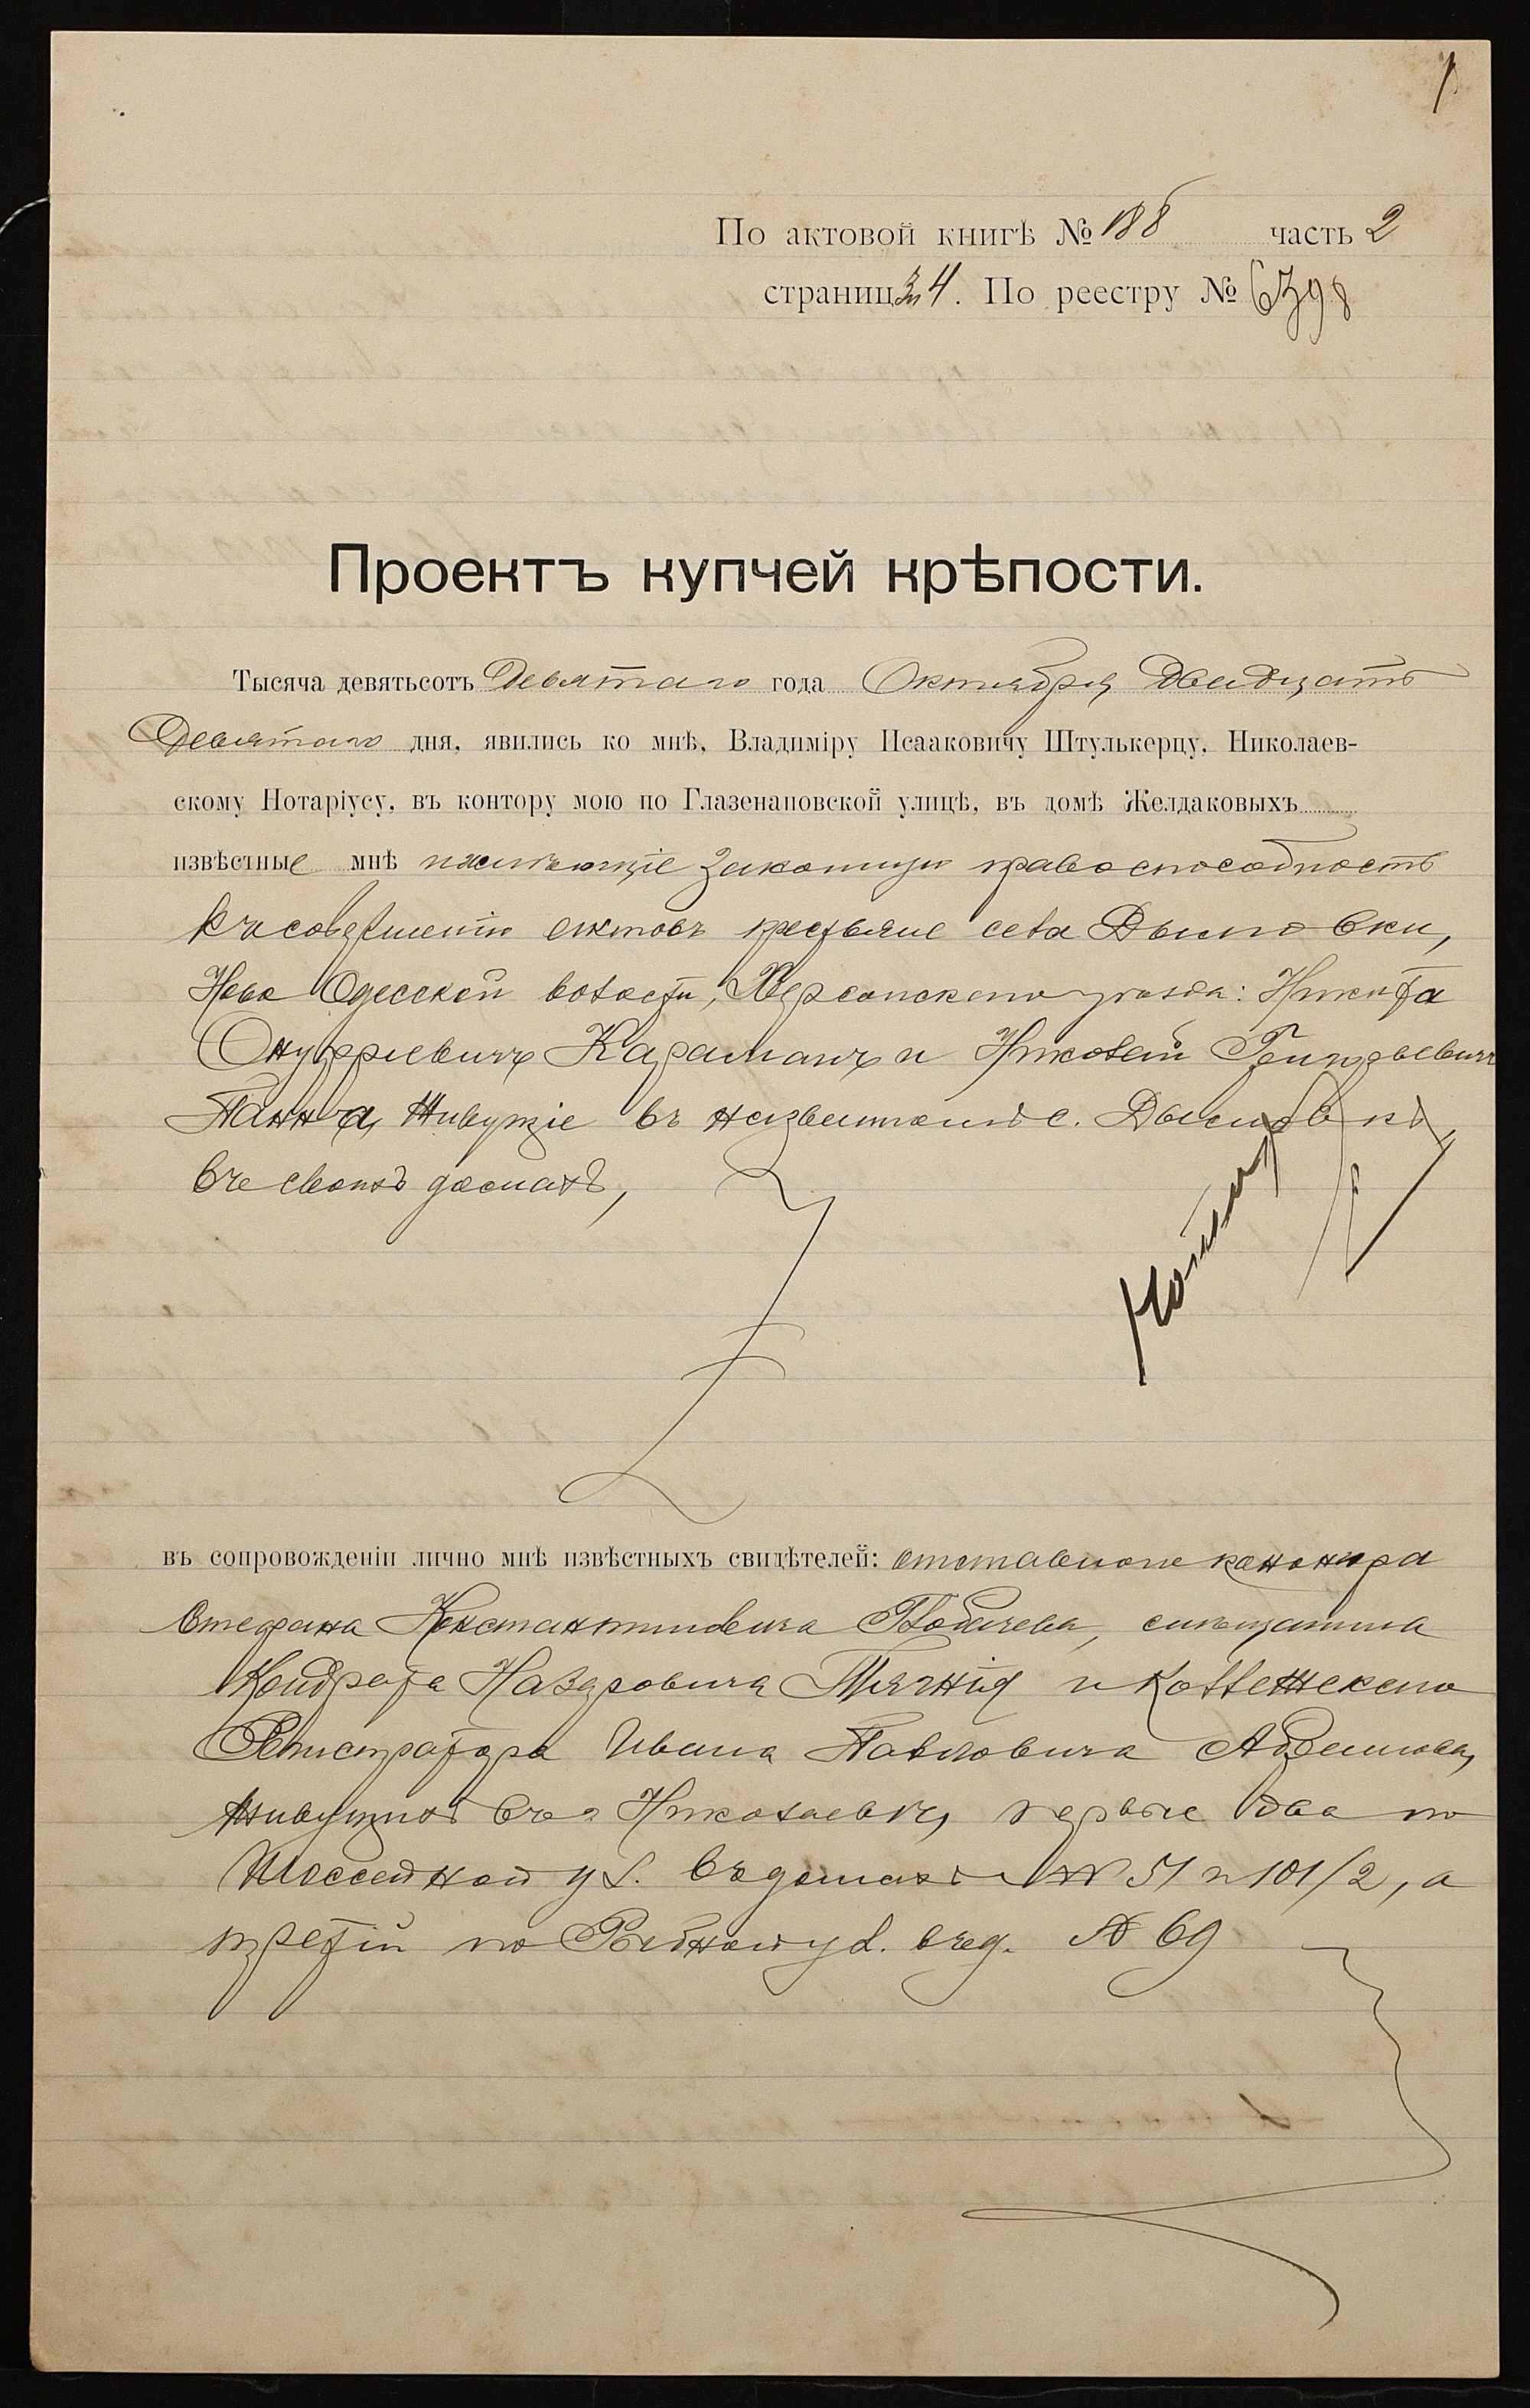 1
По актовой книгѣ № 188 часть 2
страниц. 34. По реестру № 6398
Проектъ купчей крѣпости.
Тысяча девятьсотъ Девятаго года Октября Двадцать
Девятаго дня, явились ко мнѣ, Владиміру Исааковичу Штулькерцу, Николаев-
скому Нотаріусу, въ контору мою по Глазенаповской улицѣ, въ домѣ Желдаковыхъ
извѣстные мнѣ и имѣющіе законную правоспособность
къ совершенію актовъ крестьяне села Дымовки,
Ново Одесской волости, Херсонскаго уѣзда: Никита
Онуфріевичъ Караманъ и Николай Григорьевичъ
Панча, живущіе въ с. Дымовкѣ,
въ своихъ домахъ,
въ сопровожденіи лично мнѣ извѣстныхъ свидѣтелей: отставного канонира
Стефана Константиновича
Кондрата Назаровича и Коллежскаго
Регистратора Ивана Павловича
живущихъ въ г. Николаевѣ, первые два по
Шоссейной ул. въ домахъ №№ 51 и 101/2, а
третій по Рыбной ул. въ д. № 69